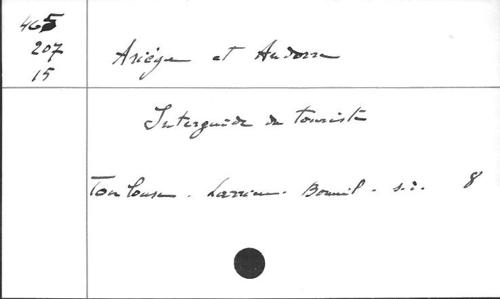 465
207
15
Ariège et Andorre
Interguide du touriste
Toulouse - Larrieu - Bonnil - s.d. 8